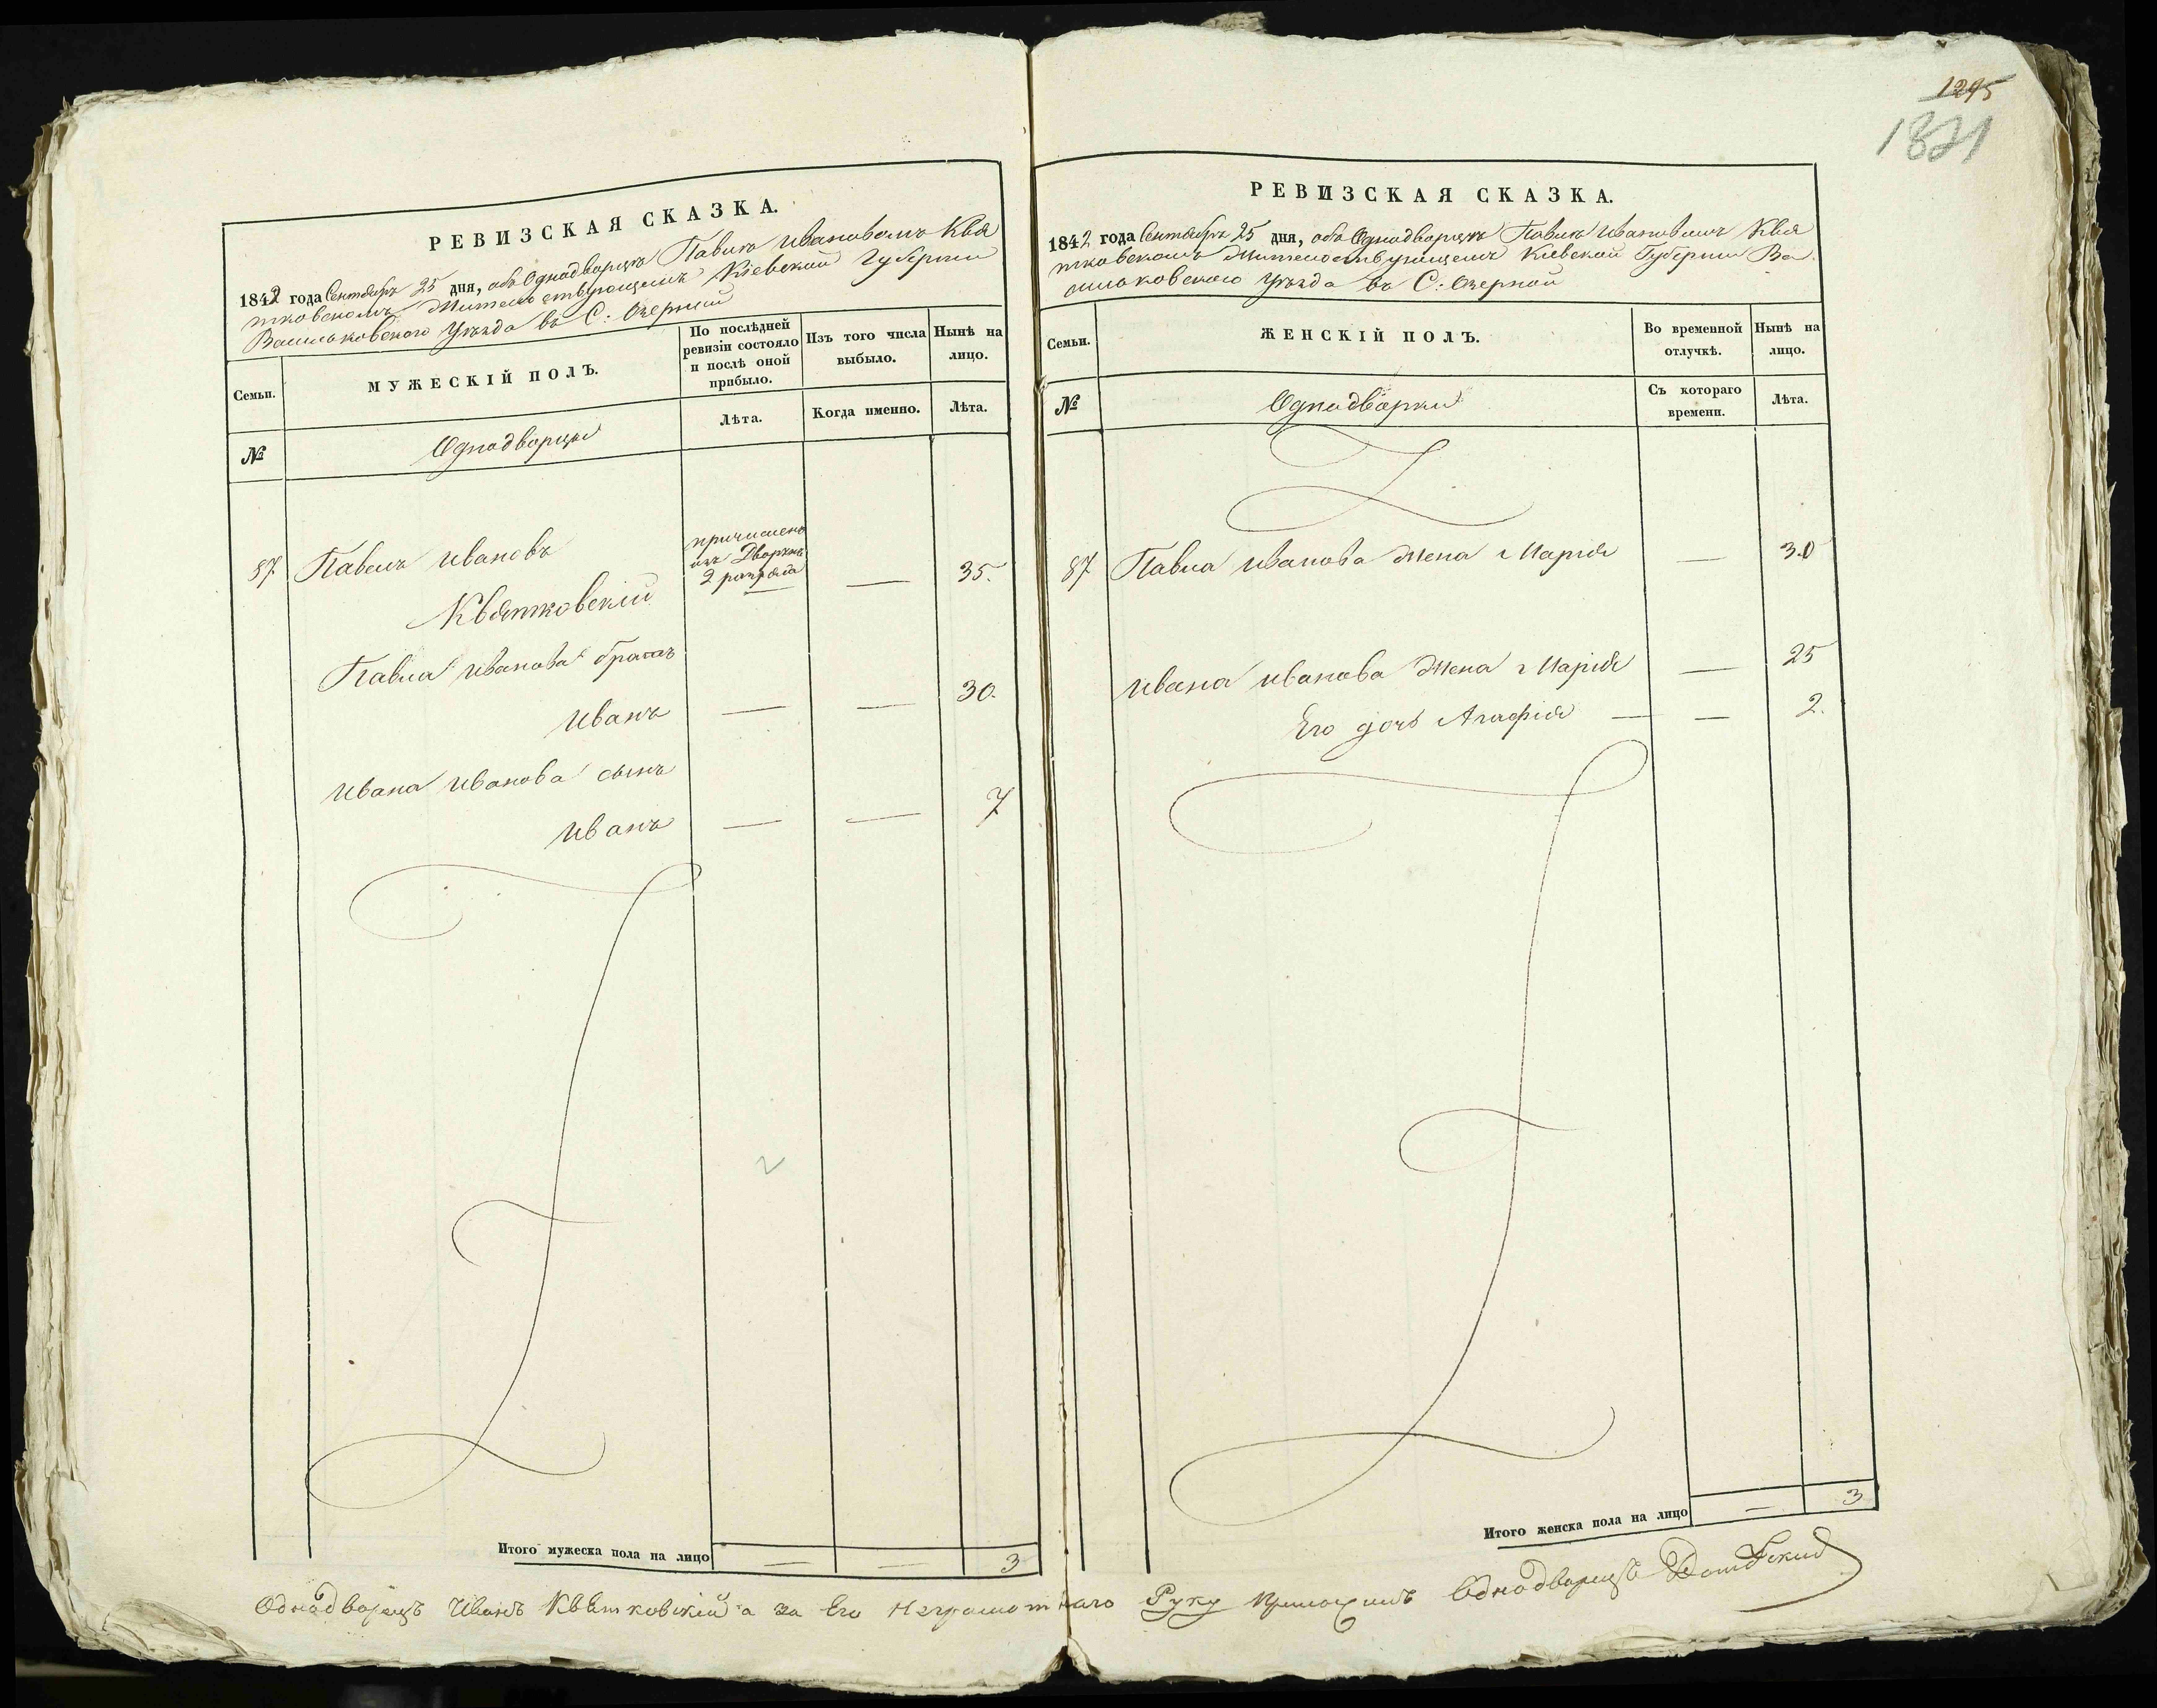 1295
1821
РЕВИЗСКАЯ СКАЗКА.
1842 года Сентября 25 дня, объ Однодворцѣ Павлѣ Ивановомъ Квя
тковскомъ Жительствующемъ Кіевской Губерніи
Васильковскаго Уѣзда въ С: Озерной
Семьи.
МУЖЕСКІЙ ПОЛЪ.
По послѣдней
ревизіи состояло
и послѣ оной
прибыло.
Изъ того числа
выбыло.
Нынѣ на
лицо.
№
Однодворцы
Лѣта.
Когда именно.
Лѣта.
87 Павелъ Ивановъ
Квятковскій
причисленъ
изъ Дворянъ
2 разряда
— 35.
Павла Иванова братъ
Иванъ — — 30.
Ивана Иванова сынъ
Иванъ — — 7
Итого мужеска пола на лицо — — 3
РЕВИЗСКАЯ СКАЗКА.
1842 года Сентября 25 дня, объ Однодворцѣ Павлѣ Ивановомъ Квя
тковскомъ Жительствующемъ Кіевской Губерніи Ва
сильковскаго Уѣзда въ С: Озерной
Семьи.
ЖЕНСКІЙ ПОЛЪ.
Во временной
отлучкѣ.
Нынѣ на
лицо.
№
Однодворки
Съ котораго
времени.
Лѣта.
87 Павла Иванова Жена Марія — 30
Ивана Иванова Жена Марія — 25
Его дочь Агафія — — 2.
Итого женска пола на лицо — 3
Однодворецъ Иванъ Квятковскій а за Его Неграмотнаго Руку приложилъ Однодворецъ